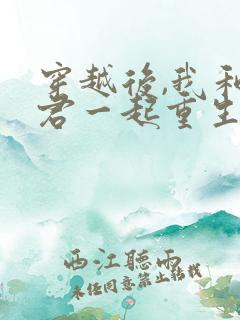 穿越後,我和
君一起重生
西江聽雨
未经同意禁止转载